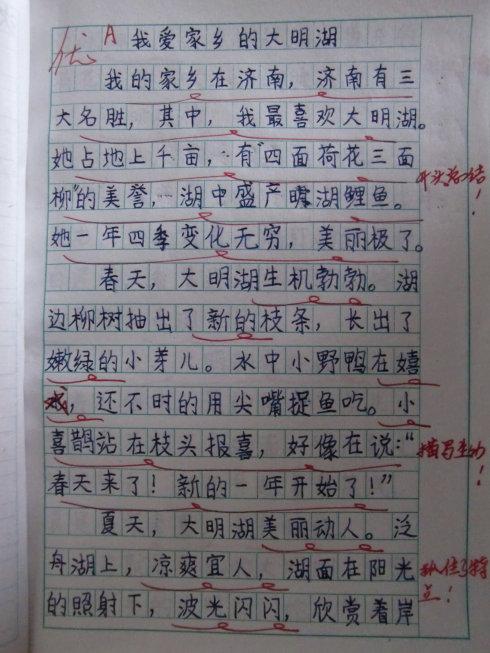 优 A 我爱家乡的大明湖
我的家乡在济南，济南有三
大名胜，其中，我最喜欢大明湖。
她占地上千亩，有“四面荷花三面
柳”的美誉，湖中盛产嘴湖鲤鱼。
她一年四季变化无穷，美丽极了。
开头总结！
春天，大明湖生机勃勃。湖
边柳树抽出了新的枝条，长出了
嫩绿的小芽儿。水中小野鸭在嬉
戏，还不时的用尖嘴捉鱼吃。小
喜鹊站在枝头报喜，好像在说：“
春天来了！新的一年开始了！”
描写生动！
夏天，大明湖美丽动人。泛
舟湖上，凉爽宜人，湖面在阳光
的照射下，波光闪闪，欣赏着岸
抓住了特点！